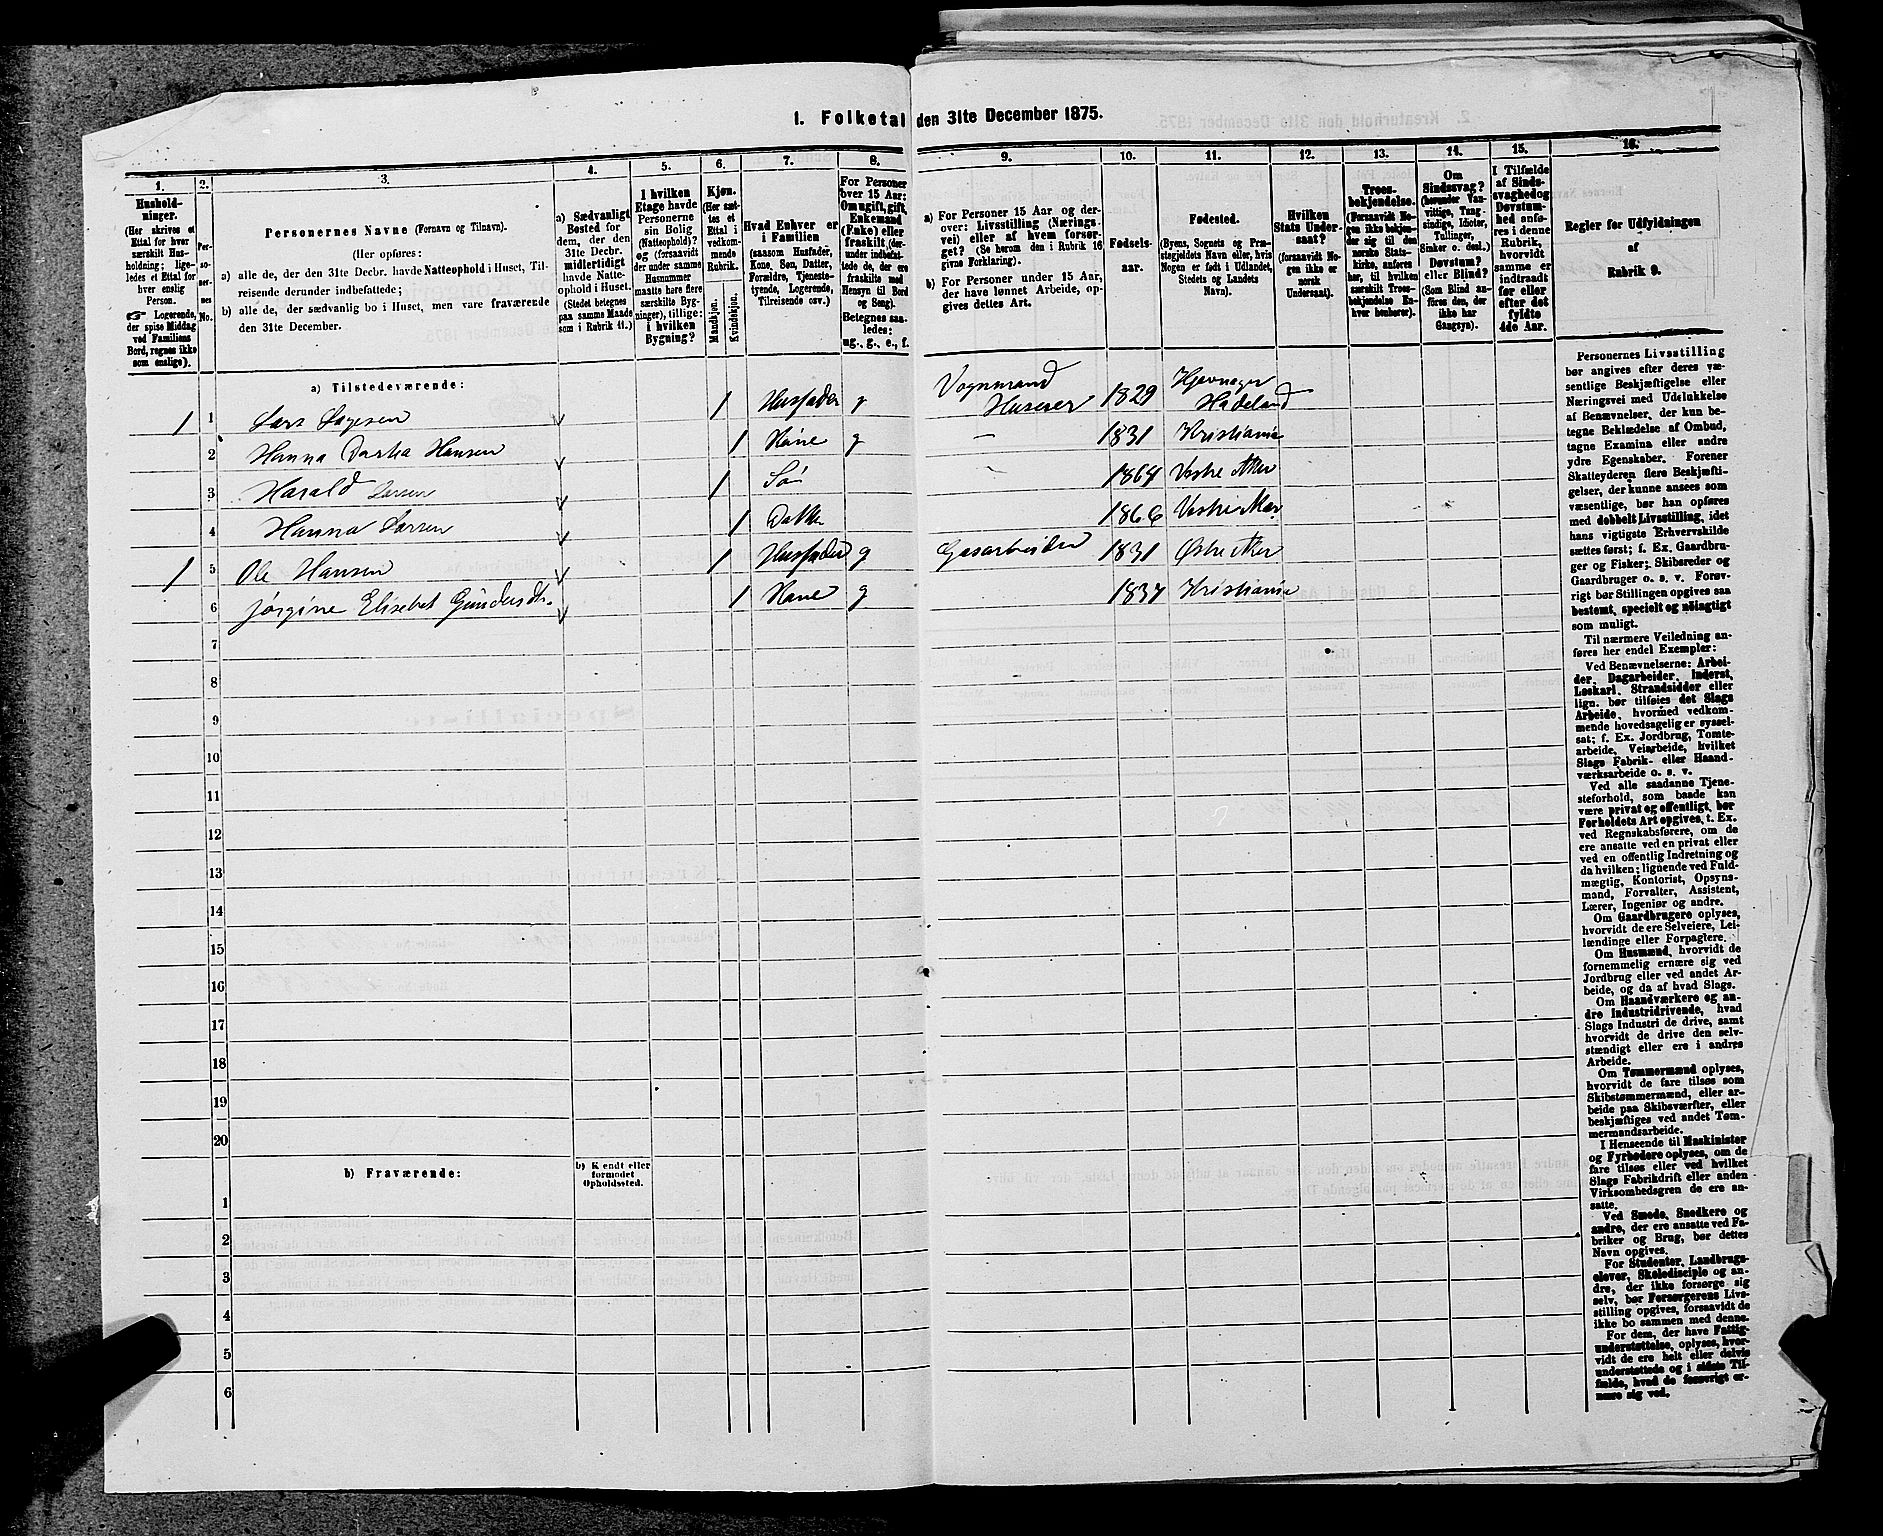 1. Folketal den 31te December 1875.
1.
2.
3.
4.
5.
6.
7.
8.
9.
10.
11.
12.
13.
14.
15.
16.
Hushold-
ninger.
(Her skrives et
Ettal for hver
særskilt Hus-
holdning; lige-
ledes et Ettal for
hver enslig
Person.
☞ Logerende,
der spise Middag
ved Familiens
Bord, regnes ikke
som enslige).
Per-
so-
ner-
nes
No.
Personernes Navne (Fornavn og Tilnavn).
(Her opføres:
a) alle de, der den 31te Decbr. havde Natteophold i Huset, Til-
reisende derunder indbefattede;
b) alle de, der sædvanlig bo i Huset, men vare fraværende
den 31te December.
a) Sædvanligt
Bosted for
dem, der den
31te Decbr.
midlertidigt
havde Natte-
ophold i Huset.
(Stedet betegnes
paa samme Maade
som i Rubrik 11.)
I hvilken
Etage havde
Personerne
sin Bolig
(Natteophold)?
og (forsaavidt
der under samme
Husnummer
maatte høre flere
særskilte Byg-
ninger), tillige:
i hvilken
Bygning?
Kjøn.
(Her sæt-
tes et
Ettal i
vedkom-
mende
Rubrik.
Mandkjøn.
Kvindekjøn.
Hvad Enhver er
i Familien
(saasom Husfader,
Kone, Søn, Datter,
Forældre, Tjeneste-
tyende, Logerende,
Tilreisende osv.)
For Personer
over 15 Aar:
Om ugift, gift,
Enkemand
(Enke) eller
fraskilt (der-
under indbefat-
tede de, der ere
fraskilte med
Hensyn til Bord
og Seng).
Betegnes saa-
ledes:
ug., g., e., f.
a) For Personer 15 Aar og der-
over: Livsstilling (Nærings-
vei) eller af hvem forsør-
get? (Se herom den i Rubrik 16
givne Forklaring).
b) For Personer under 15 Aar,
der have lønnet Arbeide, op-
gives dettes Art.
Fødsels-
aar.
Fødested.
(Byens, Sognets og Præ-
stegjeldets Navn eller, hvis
Nogen er født i Udlandet,
Stedets og Landets
Navn).
Hvilken
Stats Under-
saat?
(forsaavidt No-
gen ikke er
norsk
Undersaat).
Troes-
bekjendelse.
(Forsaavidt No-
gen ikke bekjen-
der sig til den
norske Stats-
kirke, anføres
her, til hvilken
særskilt Troes-
bekjendelse En-
hver henhører).
Om
Sindssvag?
(herunder Van-
vittige, Tung-
sindige, Idioter,
Tullinger,
Sinker o. desl.)
Døvstum?
eller Blind? (Som Blind an-
føres den, der
ikke har
Gangsyn).
I Tilfælde
af Sinds-
svaghed og
Døvstum-
hed anfø-
res i denne
Rubrik,
hvorvidt
samme er
indtraadt
før eller
efter det
fyldte
4de Aar.
Regler for Udfyldningen
af
Rubrik 9.
a) Tilstedeværende:
1 1 Lars Larsen 1 Husfader g Vognmand Huseier 1829 Hjevnager Hadeland
2 Hanna Hansen 1 Kone g 1831 Kristiania
3 Harald Larsen 1 Søn 1864 Vestre Aker
4 Hanna Larsen 1 Datter 1866 Vestre Aker
1 5 Ole Hansen 1 Husfader g Gasarbeider 1831 Østre Aker
6 Jørgine Elisebet Gundersdtr. 1 Kone g 1837 Kristiania
7
8
9
10
11
12
13
14
15
16
17
18
19
20
b) Fraværende:
b) Kjendt eller
formodet
Opholdssted.
1
2
3
4
5
6
Personernes Livsstilling
bør angives efter deres væ-
sentlige Beskjæftigelse eller
Næringsvei med Udelukkelse
af Benævnelser, der kun be-
tegne Beklædelse af Ombud,
tagne Examina eller andre
ydre Egenskaber. Forener
Skatteyderen flere Beskjæfti-
gelser, der kunne ansees som
væsentlige, bør han opføres
med dobbelt Livsstilling, idet
hans vigtigste Erhvervskilde
sættes først; f. Ex. Gaardbru-
ger og Fisker; Skibsreder og
Gaardbruger o. s. v. Forøv-
rigt bør Stillingen opgives saa
bestemt, specielt og nöiagtigt
som muligt.
Til nærmere Veiledning an-
føres her endel Exempler:
Ved Benævnelserne: Arbei-
der, Dagarbeider, Inderst,
Løskarl, Strandsidder eller
lign. bør tilføies det Slags
Arbeide, hvormed vedkom-
mende hovedsagelig er syssel-
sat; f. Ex. Jordbrug, Tomte-
arbeide, Veiarbeide, hvilket
Slags Fabrik- eller Haand-
værksarbeide o. s. v.
Ved alle saadanne Tjene-
steforhold, som baade kan
være privat og offentligt, bør
Forholdets Art opgives, t. Ex.
ved Regnskabsførere, om de
ere ansatte ved en privat eller
ved en offentlig Indretning og
da hvilken; lignende ved Fuld-
mægtig, Kontorist, Opsyns-
mand, Forvalter, Assistent,
Lærer, Ingeniør og andre.
Om Gaardbrugere oplyses,
hvorvidt de ere Selveiere, Lei-
lændinge eller Forpagtere.
Om Husmænd, hvorvidt de
fornemmelig ernære sig ved
Jordbrug eller ved andet Ar-
beide, og da af hvad Slags.
Om Haandværkere og an-
dre Industridrivende, hvad
Slags Industri de drive, samt
hvorvidt de drive den selv-
stændigt eller ere i andres
Arbeide.
Om Tømmermænd oplyses,
hvorvidt de fare tilsøs som
Skibstømmermænd, eller ar-
beide paa Skibsværfter, eller
beskjæftiges ved andet Tøm-
mermandsarbeide.
I Henseende til Maskinister
og Fyrbødere oplyses, om de
fare tilsøs eller ved hvilket
Slags Fabrikdrift eller anden
Virksomhedsgren de ere an-
satte.
Ved Smede, Snedkere og
andre, der ere ansatte ved Fa-
briker og Brug, bør dettes
Navn opgives.
For Studenter, Landbrugs-
elever, Skoledisciple og an-
dre, der ikke forsørge sig
selv, bør Forsørgerens Livs-
stilling opgives, forsaavidt de
ikke bo sammen med denne.
For dem, der have Fattig-
understøttelse, oplyses, hvor-
vidt de ere helt eller delvis
understøttede og i sidste Til-
fælde, hvad de forøvrigt er-
nære sig ved.